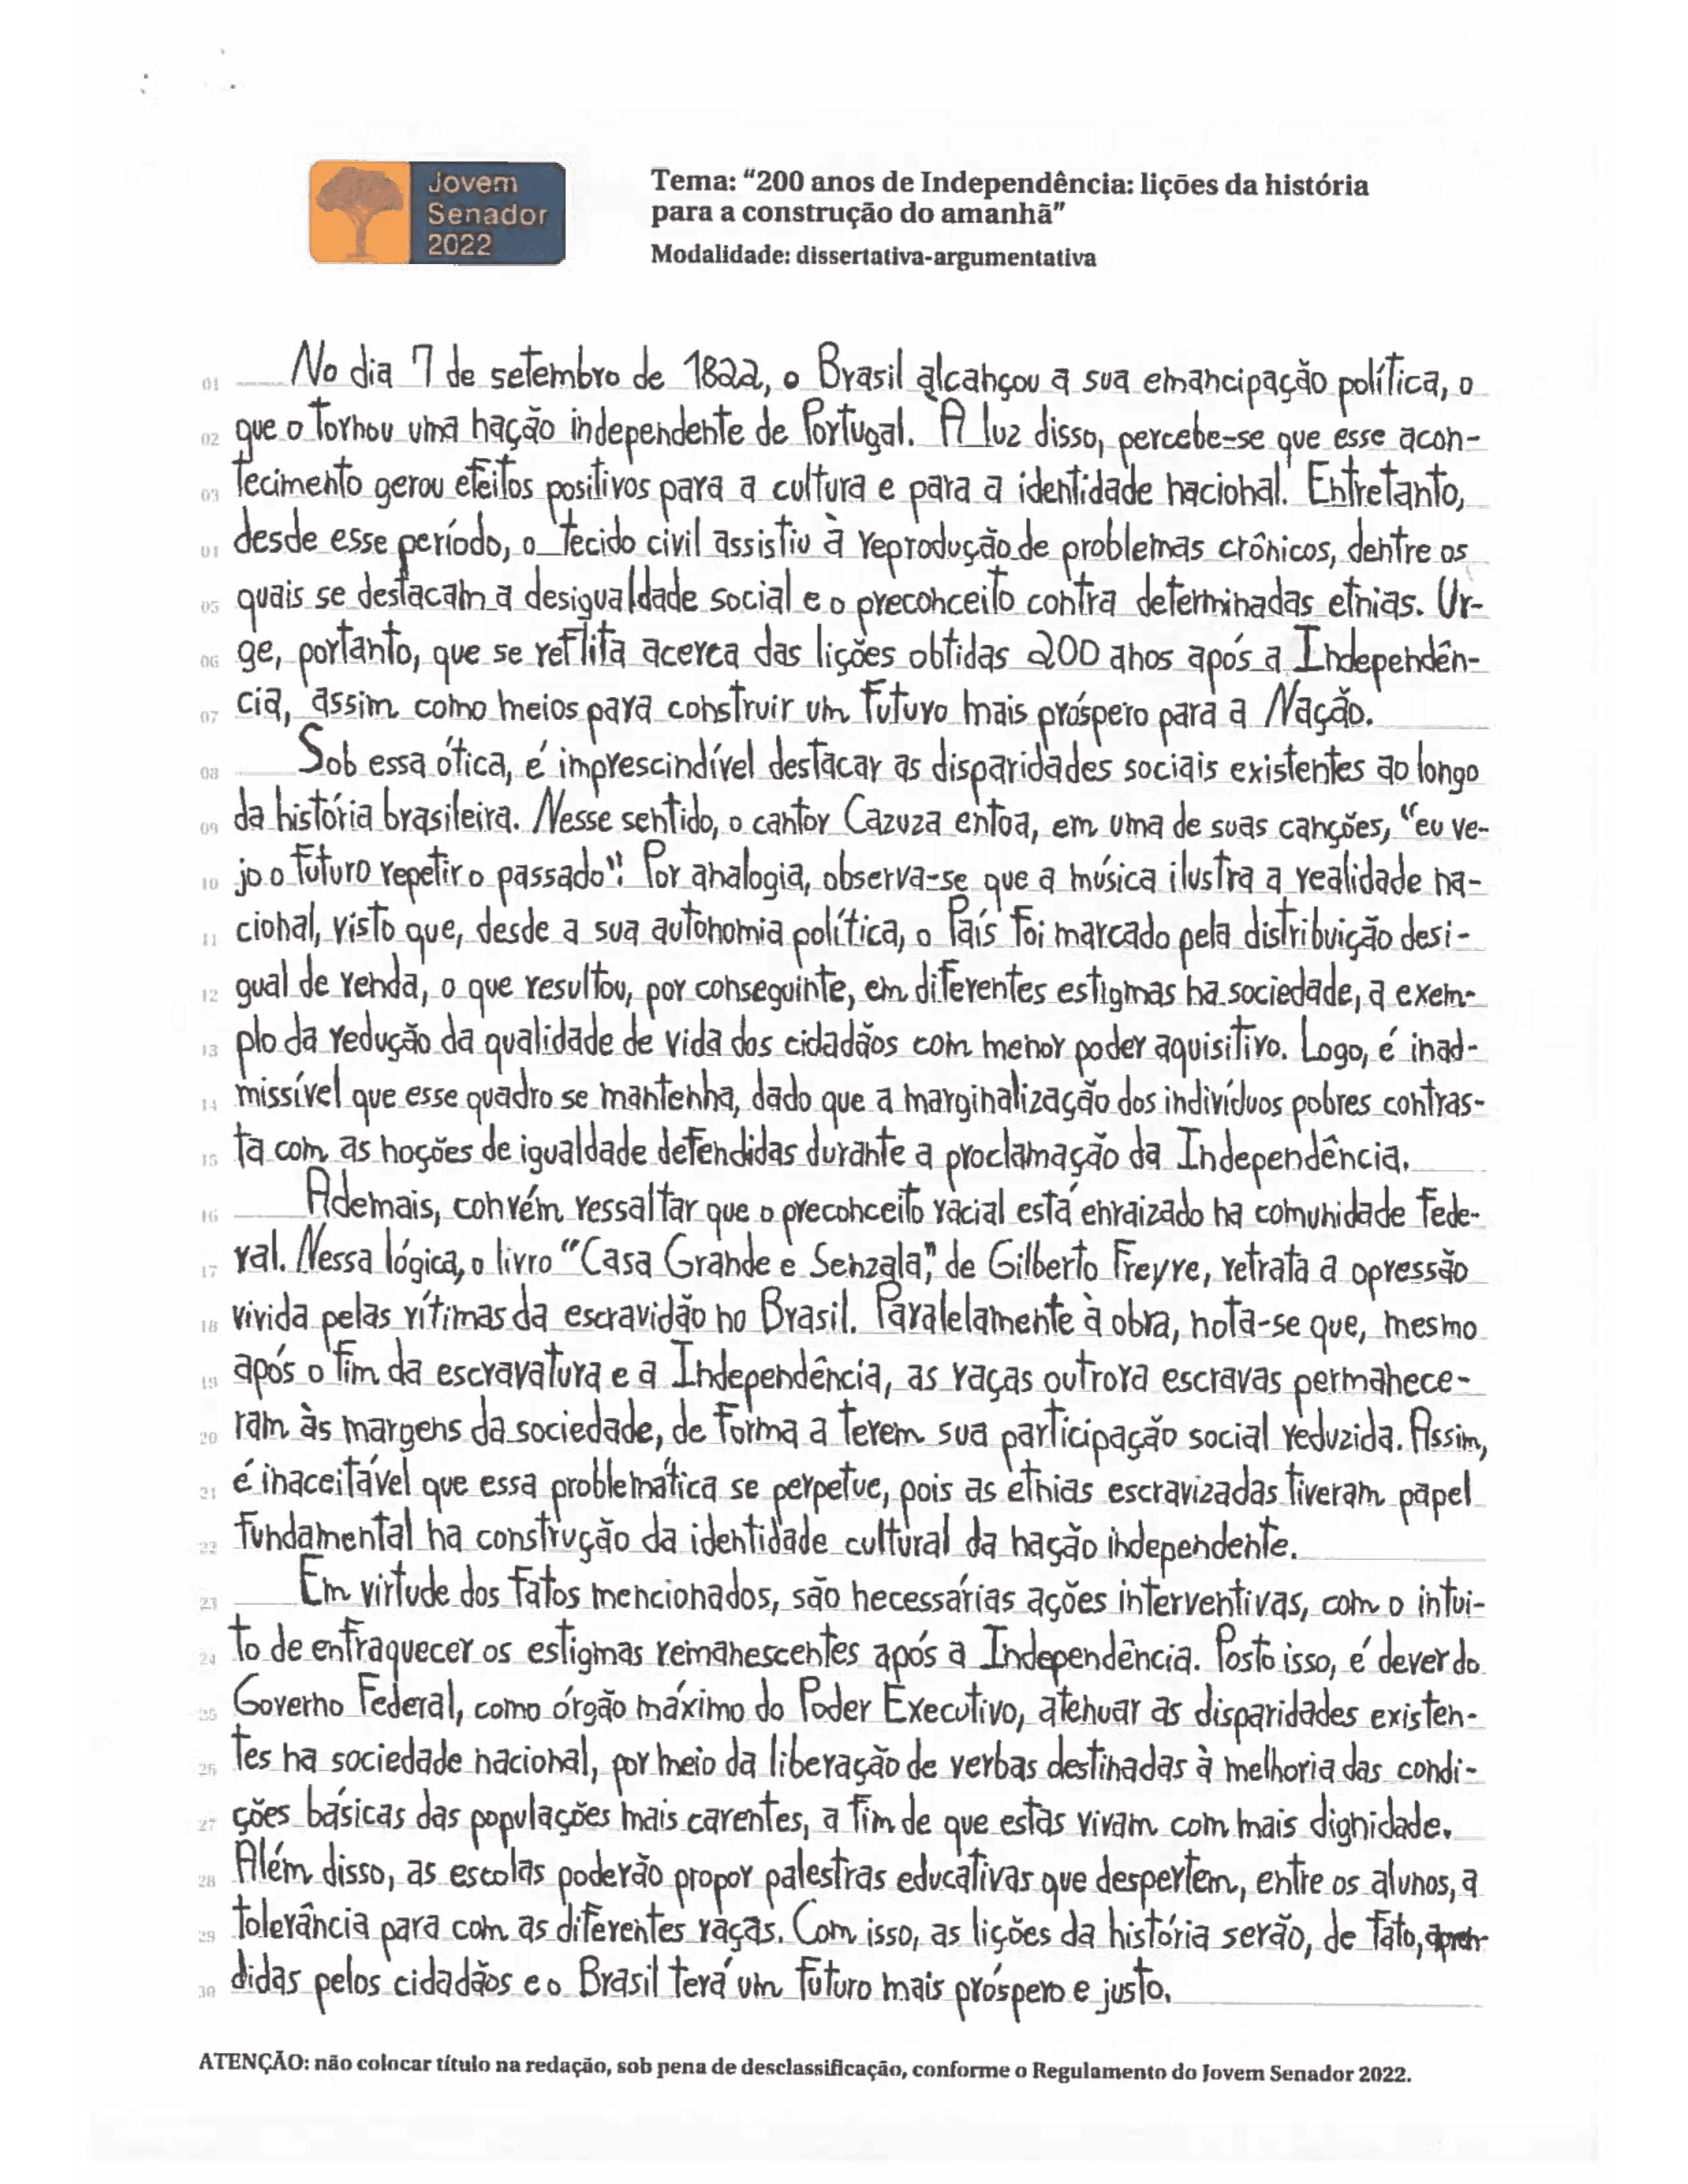 Jovem
Senador
2022
Tema: "200 anos de Independência: lições da história
para a construção do amanhã"
Modalidade: dissertativa-argumentativa
01 No dia 7 de setembro de 1822, o Brasil alcançou a sua emancipação política, o
02 que o tornou uma nação independente de Portugal. À luz disso, percebe-se que esse acon-
03 tecimento gerou efeitos positivos para a cultura e para a identidade nacional. Entretanto,
04 desde esse período, o tecido civil assistiu à reprodução de problemas crônicos, dentre os
05 quais se destacam a desigualdade social e o preconceito contra determinadas etnias. Ur-
06 ge, portanto, que se reflita acerca das lições obtidas 200 anos após a Independên-
07 cia, assim como meios para construir um futuro mais próspero para a Nação.
08 Sob essa ótica, é imprescindível destacar as disparidades sociais existentes ao longo
09 da história brasileira. Nesse sentido, o cantor Cazuza entoa, em uma de suas canções, "eu ve-
10 jo o futuro repetir o passado". Por analogia, observa-se que a música ilustra a realidade na-
11 cional, visto que, desde a sua autonomia política, o País foi marcado pela distribuição desi-
12 gual de renda, o que resultou, por conseguinte, em diferentes estigmas na sociedade, a exem-
13 plo da redução da qualidade de vida dos cidadãos com menor poder aquisitivo. Logo, é inad-
14 missível que esse quadro se mantenha, dado que a marginalização dos indivíduos pobres contras-
15 ta com as noções de igualdade defendidas durante a proclamação da Independência.
16 Ademais, convém ressaltar que o preconceito racial está enraizado na comunidade fede-
17 ral. Nessa lógica, o livro "Casa Grande e Senzala", de Gilberto Freyre, retrata a opressão
18 vivida pelas vítimas da escravidão no Brasil. Paralelamente à obra, nota-se que, mesmo
19 após o fim da escravatura e a Independência, as raças outrora escravas permanece-
20 ram às margens da sociedade, de forma a terem sua participação social reduzida. Assim,
21 é inaceitável que essa problemática se perpetue, pois as etnias escravizadas tiveram papel
22 fundamental na construção da identidade cultural da nação independente.
23 Em virtude dos fatos mencionados, são necessárias ações interventivas, com o intui-
24 to de enfraquecer os estigmas remanescentes após a Independência. Posto isso, é dever do
25 Governo Federal, como órgão máximo do Poder Executivo, atenuar as disparidades existen-
26 tes na sociedade nacional, por meio da liberação de verbas destinadas à melhoria das condi-
27 ções básicas das populações mais carentes, a fim de que estas vivam com mais dignidade.
28 Além disso, as escolas poderão propor palestras educativas que despertem, entre os alunos, a
29 tolerância para com as diferentes raças. Com isso, as lições da história serão, de fato, apren-
30 didas pelos cidadãos e o Brasil terá um futuro mais próspero e justo.
ATENÇÃO: não colocar título na redação, sob pena de desclassificação, conforme o Regulamento do Jovem Senador 2022.